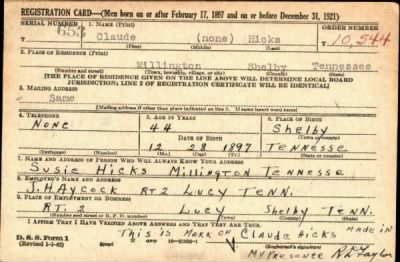 REGISTRATION CARD—(Men born on or after February 17, 1897 and on or before December 31, 1921)
SERIAL NUMBER 1. NAME (Print) ORDER NUMBER
653 Claude (none) Hicks 10,544
(First) (Middle) (Last)
2. PLACE OF RESIDENCE (Print)
Millington Shelby Tennessee
(Number and street) (Town, township, village, or city) (County) (State)
[THE PLACE OF RESIDENCE GIVEN ON THE LINE ABOVE WILL DETERMINE LOCAL BOARD
JURISDICTION; LINE 2 OF REGISTRATION CERTIFICATE WILL BE IDENTICAL]
3. MAILING ADDRESS
Same
[Mailing address if other than place indicated on line 2. If same insert word same]
4. TELEPHONE 5. AGE IN YEARS 6. PLACE OF BIRTH
None 44 Shelby
DATE OF BIRTH (Town or county)
12 28 1897 Tennesse
(Exchange) (Number) (Mo.) (Day) (Yr.) (State or country)
7. NAME AND ADDRESS OF PERSON WHO WILL ALWAYS KNOW YOUR ADDRESS
Susie Hicks Millington Tennesse
8. EMPLOYER'S NAME AND ADDRESS
J. HAycock RT 2 Lucy TENN.
9. PLACE OF EMPLOYMENT OR BUSINESS
RT. 2 Lucy Shelby TENN.
(Number and street or R. F. D. number) (Town) (County) (State)
I AFFIRM THAT I HAVE VERIFIED ABOVE ANSWERS AND THAT THEY ARE TRUE.
D. S. S. Form 1 This is MARK OF CLAUDE HICKS made in
(Revised 1-1-42) GPO 16—21630-1 (Registrant's signature)
My Presence R L Taylor